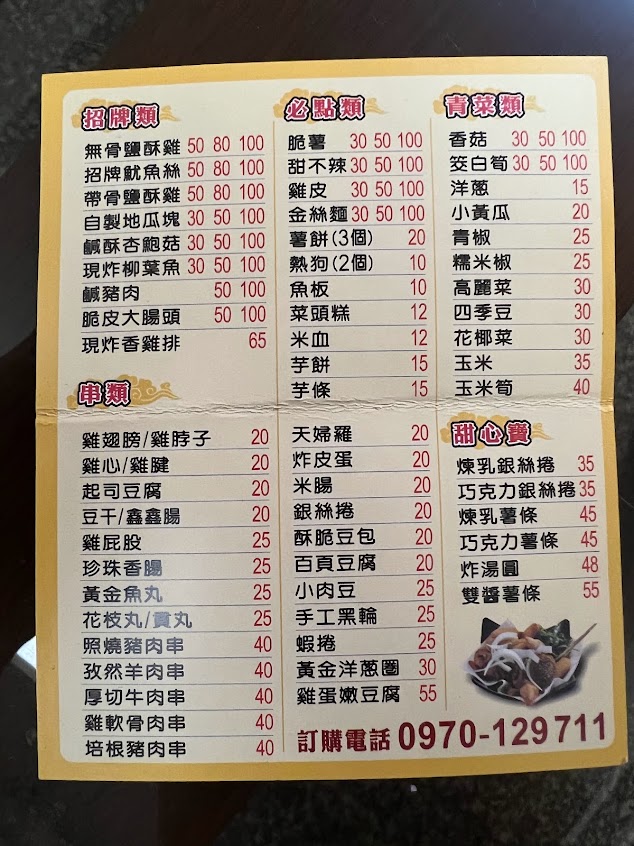 招牌類
無骨鹽酥雞 50 80 100
招牌魷魚絲 50 80 100
帶骨鹽酥雞 50 80 100
自製地瓜塊 30 50 100
鹹酥杏鮑菇 30 50 100
現炸柳葉魚 30 50 100
鹹豬肉 50 100
脆皮大腸頭 50 100
現炸香雞排 65
串類
雞翅膀/雞脖子 20
雞心/雞腱 20
起司豆腐 20
豆干/鑫鑫腸 20
雞屁股 25
珍珠香腸 25
黃金魚丸 25
花枝丸/貢丸 25
照燒豬肉串 40
孜然羊肉串 40
厚切牛肉串 40
雞軟骨肉串 40
培根豬肉串 40
必點類
脆薯 30 50 100
甜不辣 30 50 100
雞皮 30 50 100
金絲麵 30 50 100
薯餅(3個) 20
熱狗(2個) 10
魚板 10
菜頭糕 12
米血 12
芋餅 15
芋條 15
天婦羅 20
炸皮蛋 20
米腸 20
銀絲捲 20
酥脆豆包 20
百頁豆腐 20
小肉豆 25
手工黑輪 25
蝦捲 25
黃金洋蔥圈 30
雞蛋嫩豆腐 55
青菜類
香菇 30 50 100
筊白筍 30 50 100
洋蔥 15
小黃瓜 20
青椒 25
糯米椒 25
高麗菜 30
四季豆 30
花椰菜 30
玉米 35
玉米筍 40
甜心寶
煉乳銀絲捲 35
巧克力銀絲捲 35
煉乳薯條 45
巧克力薯條 45
炸湯圓 48
雙醬薯條 55
訂購電話 0970-129711